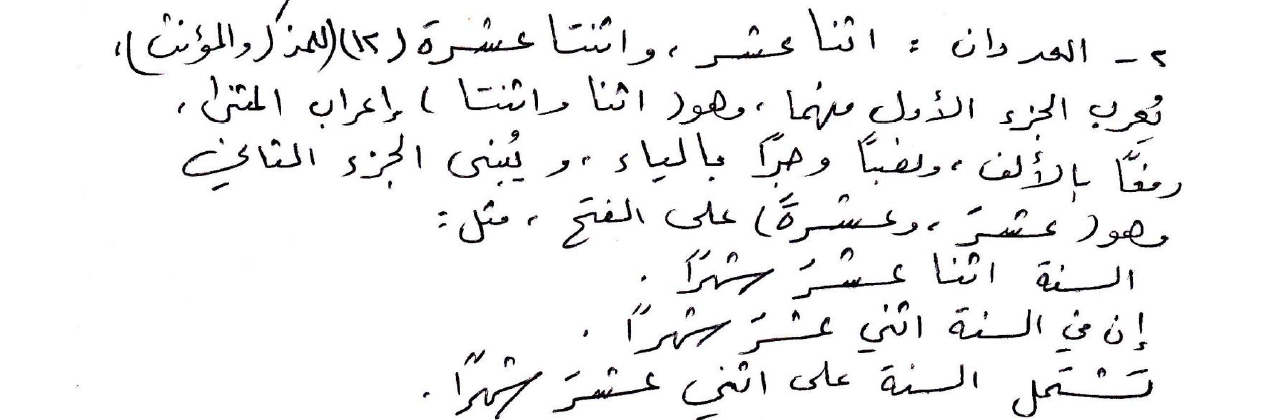 ٢ - العددان : اثنا عشر ، واثنتا عشرة (١٢) (للمذكر والمؤنث) ،
يُعرب الجزء الأول منهما ، وهو ( اثنا واثنتا ) إعراب المثنى ،
رفعًا بالألف ، ونصبًا وجرًا بالياء ، و يُبنى الجزء الثاني
وهو ( عشرَ ، وعشرةَ ) على الفتح ، مثل :
السنة اثنا عشرَ شهرًا .
إن في السنة اثني عشرَ شهرًا .
تشتمل السنة على اثني عشرَ شهرًا .